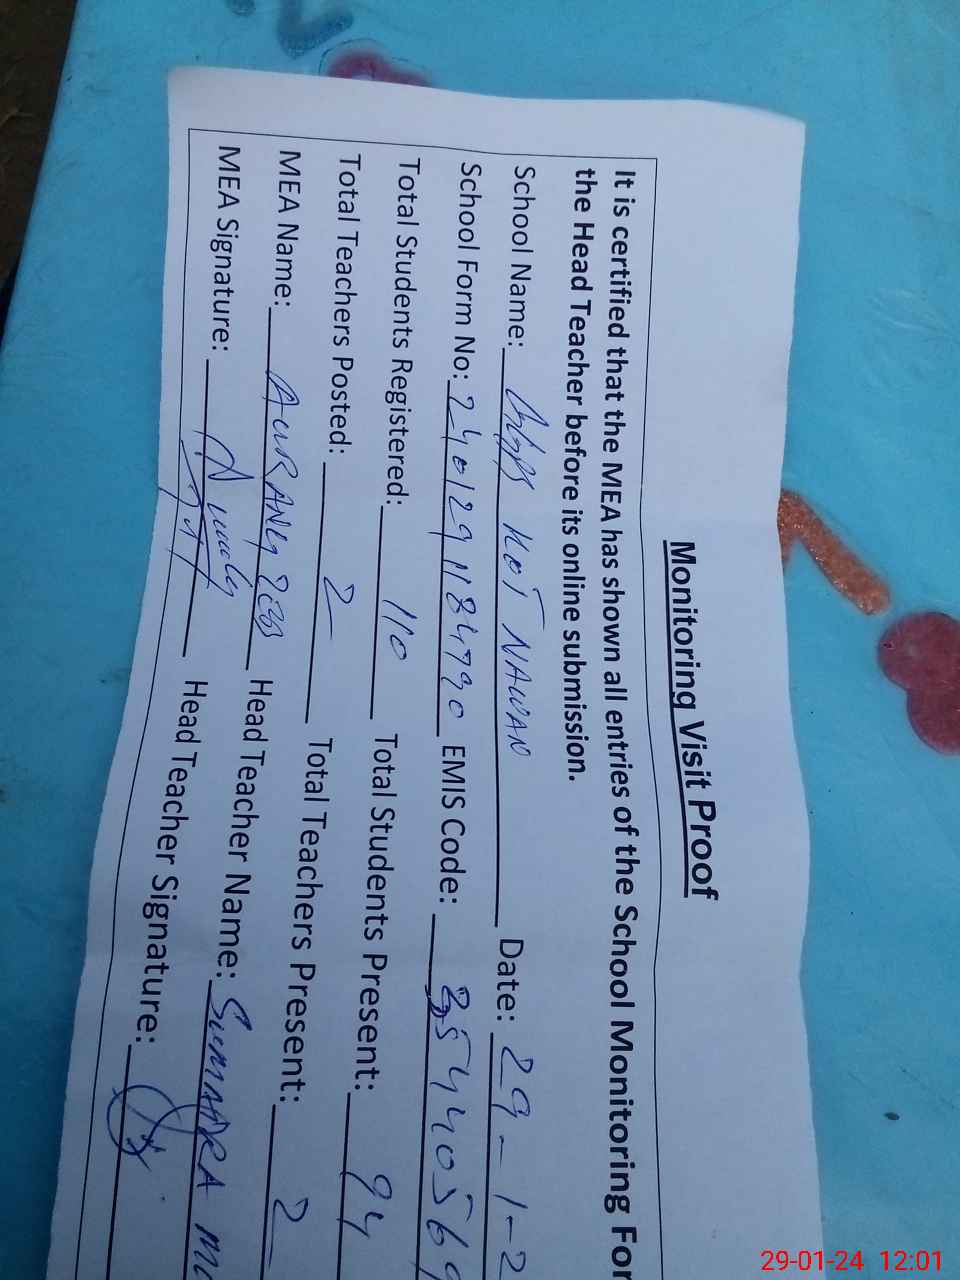 Monitoring Visit Proof
It is certified that the MEA has shown all entries of the School Monitoring For
the Head Teacher before its online submission.
School Name: KOT NAWAN Date: 29-1-2
School Form No: 2401291184790 EMIS Code: 35440569
Total Students Registered: 110 Total Students Present: 94
Total Teachers Posted: 2 Total Teachers Present: 2
MEA Name: AURANGZEB Head Teacher Name: SUMAIRA
MEA Signature: Head Teacher Signature:
29-01-24 12:01